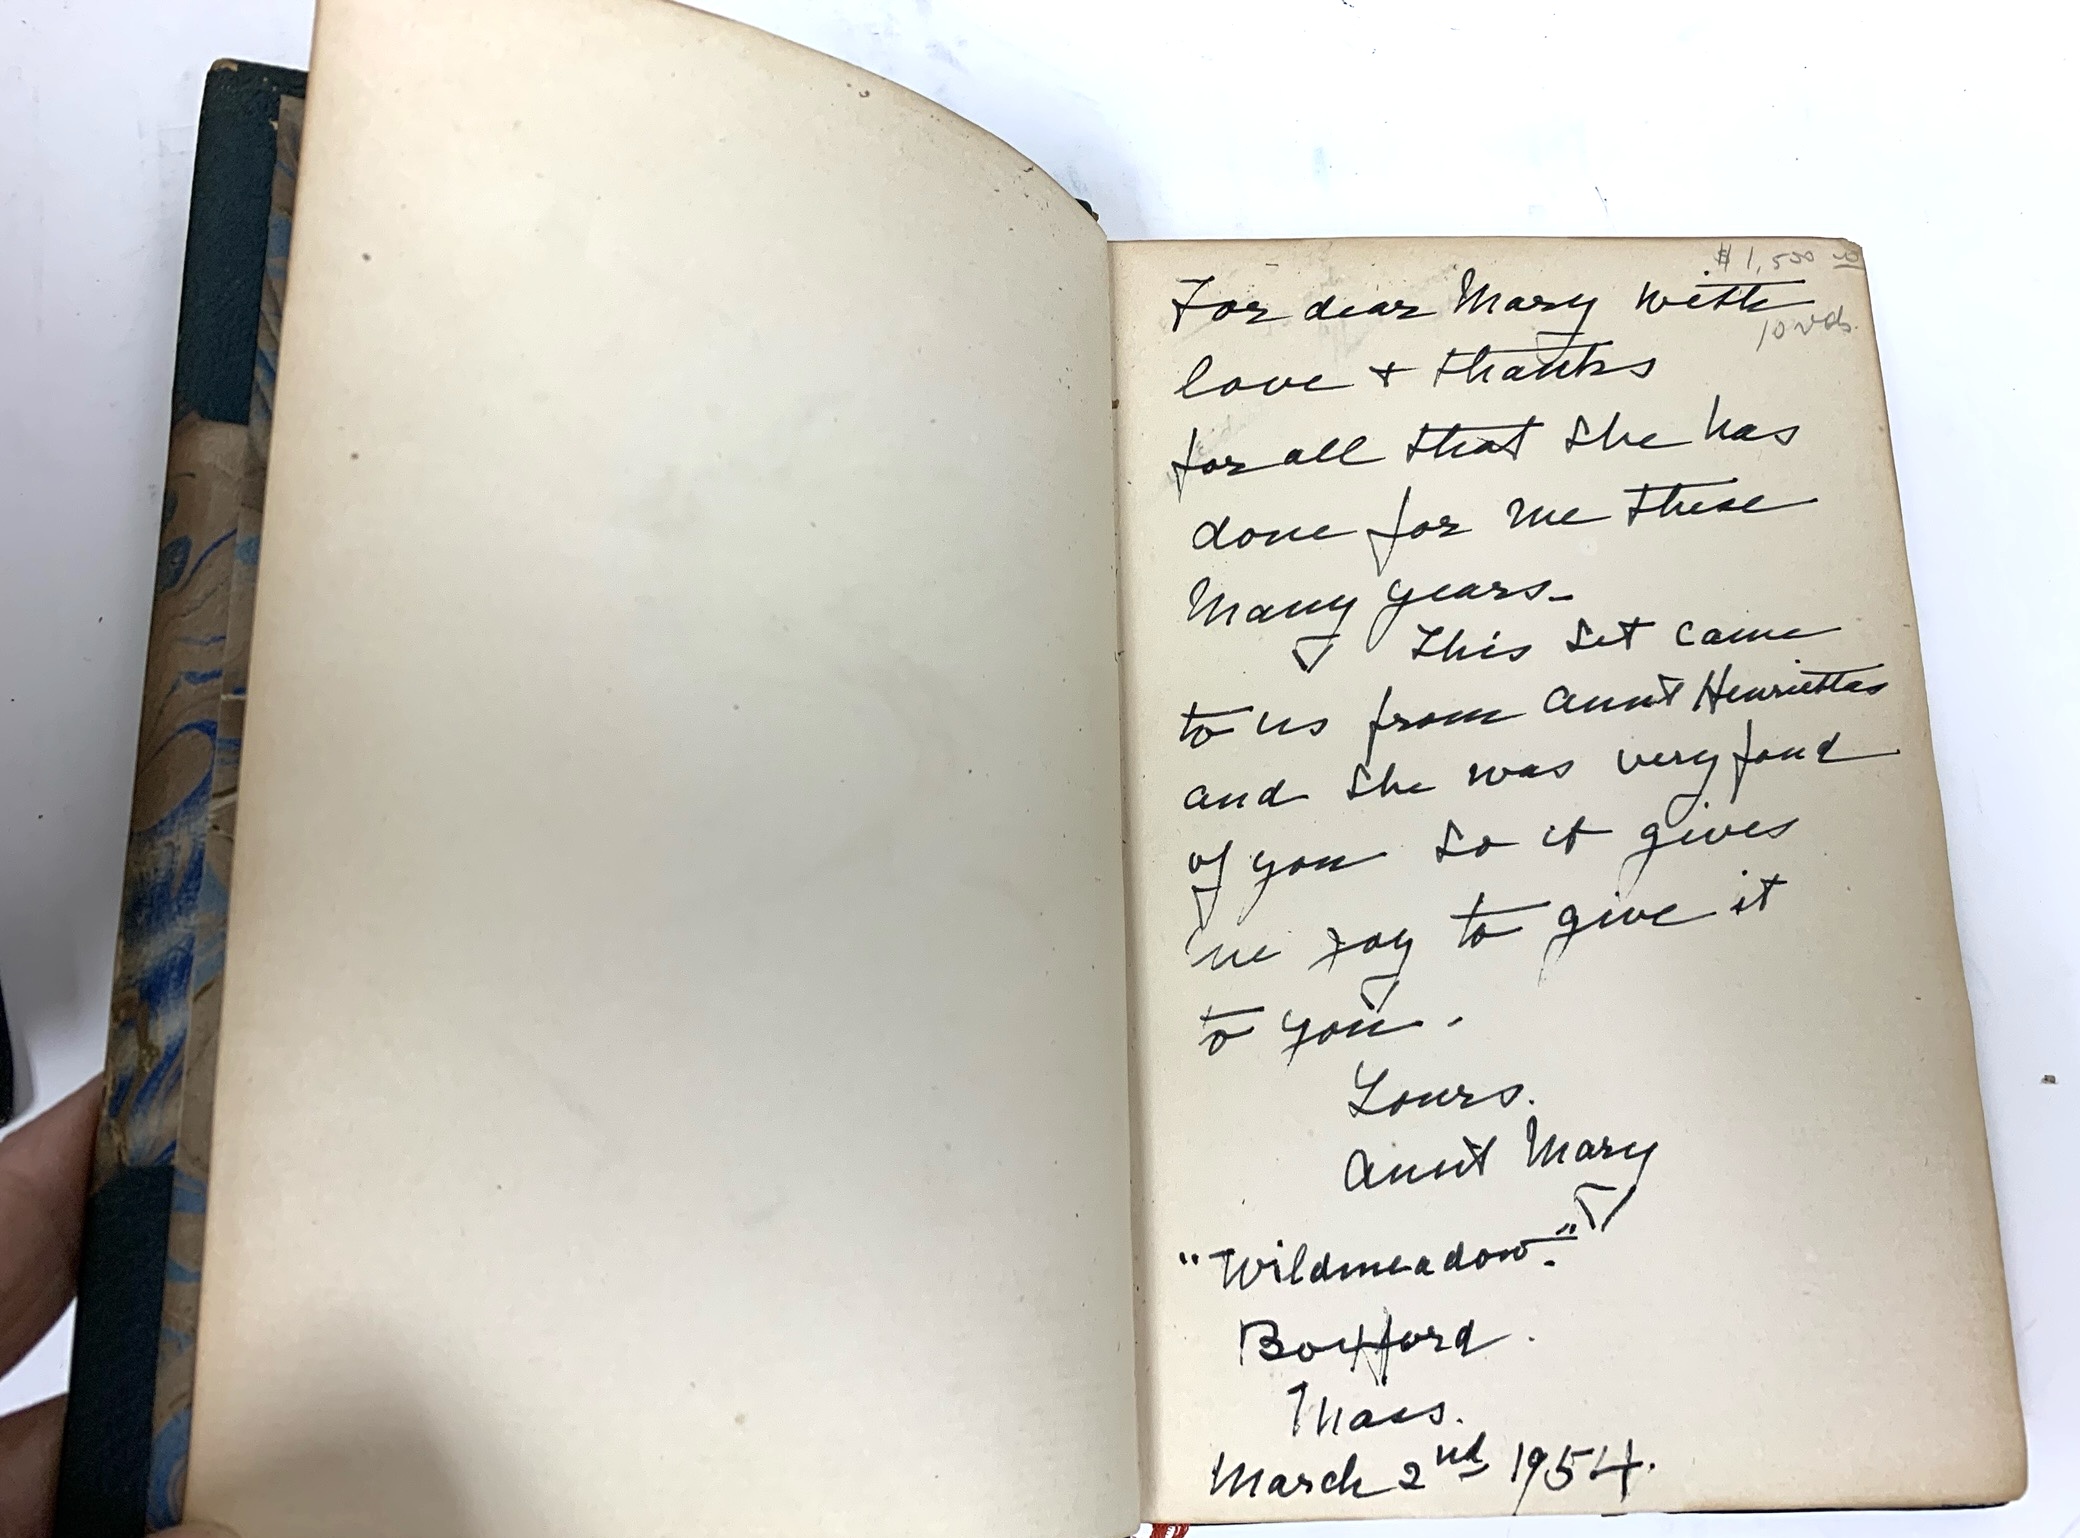 $1,500.00
For dear Mary with
10 vols.
love + thanks
for all that she has
done for me these
many years -
This set came
to us from Aunt Henriettas
and she was very fond
of you so it gives
me joy to give it
to you.
Yours.
Aunt Mary
"Wildmeadow."
Boxford.
Mass.
March 2nd 1954.